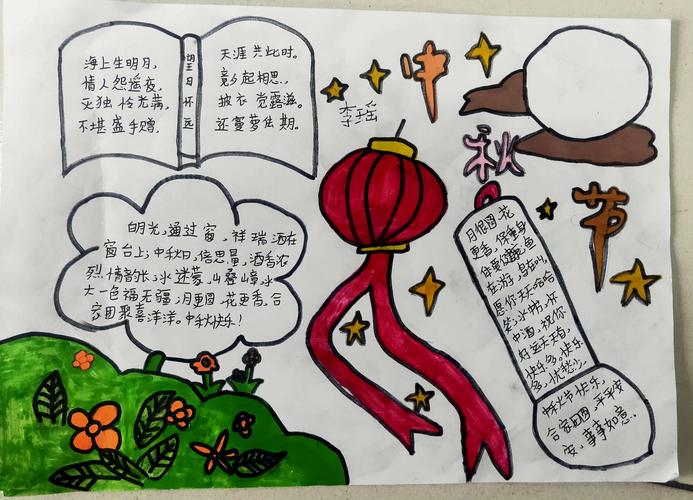 海上生明月,
情人怨遥夜,
灭独怜光满,
不堪盈手赠,
望月怀远
天涯共此时。
竟夕起相思,
披衣觉露滋。
还寝梦佳期。
李瑶
中
秋
节
明光,通过窗,祥瑞洒在
窗台上;中秋日,倍思量,酒香浓
烈情韵长;水迷蒙,山叠嶂,水
大一色福无疆;月更圆,花更香,合
家团聚喜洋洋。中秋快乐!
月很圆,花
更香,保重身
体更健康,鱼
在游,鸟在叫,
愿你天天哈哈
笑,水
中酒,祝你
好运天天有,
快乐多。快乐
多,忧愁少。
中秋节快乐,
合家团圆,平平安
安,事事如意.